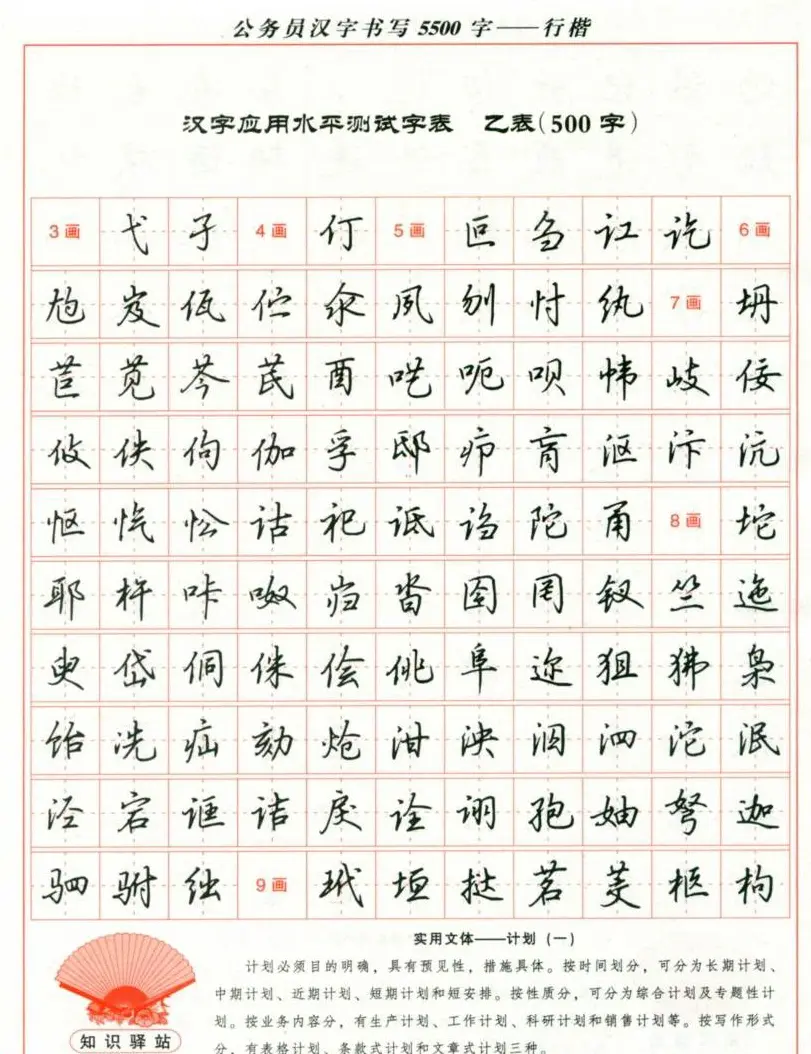 公务员汉字书写5500字——行楷
汉字应用水平测试字表 乙表(500字)
3画 弋 孑 4画 仃 5画 叵 刍 讧 讫 6画
岌 佤 伫 汆 夙 刎 忖 纨 7画 坍
苣 苋 芩 芪 酉 呓 呃 呗 帏 岐 佞
攸 佚 佝 伽 孚 邸 肓 沤 汴 沆
怄 忾 忪 诂 祀 诋 诌 陀 甬 8画 坨
耶 杵 咔 呶 岿 沓 囹 罔 钗 竺 迤
臾 岱 侗 侏 侩 佻 阜 迩 狙 狒 枭
饴 冼 疝 劾 炝 泔 泱 泅 泗 沱 泯
泾 宕 诓 诘 戾 诠 诩 孢 妯 弩 迦
驷 驸 绌 9画 玳 垣 挞 茗 柩 枸
实用文体——计划(一)
计划必须目的明确，具有预见性，措施具体。按时间划分，可分为长期计划、
中期计划、近期计划、短期计划和短安排。按性质分，可分为综合计划及专题性计
划。按业务内容分，有生产计划、工作计划、科研计划和销售计划等。按写作形式
分，有表格计划、条款式计划和文章式计划三种。
知识驿站